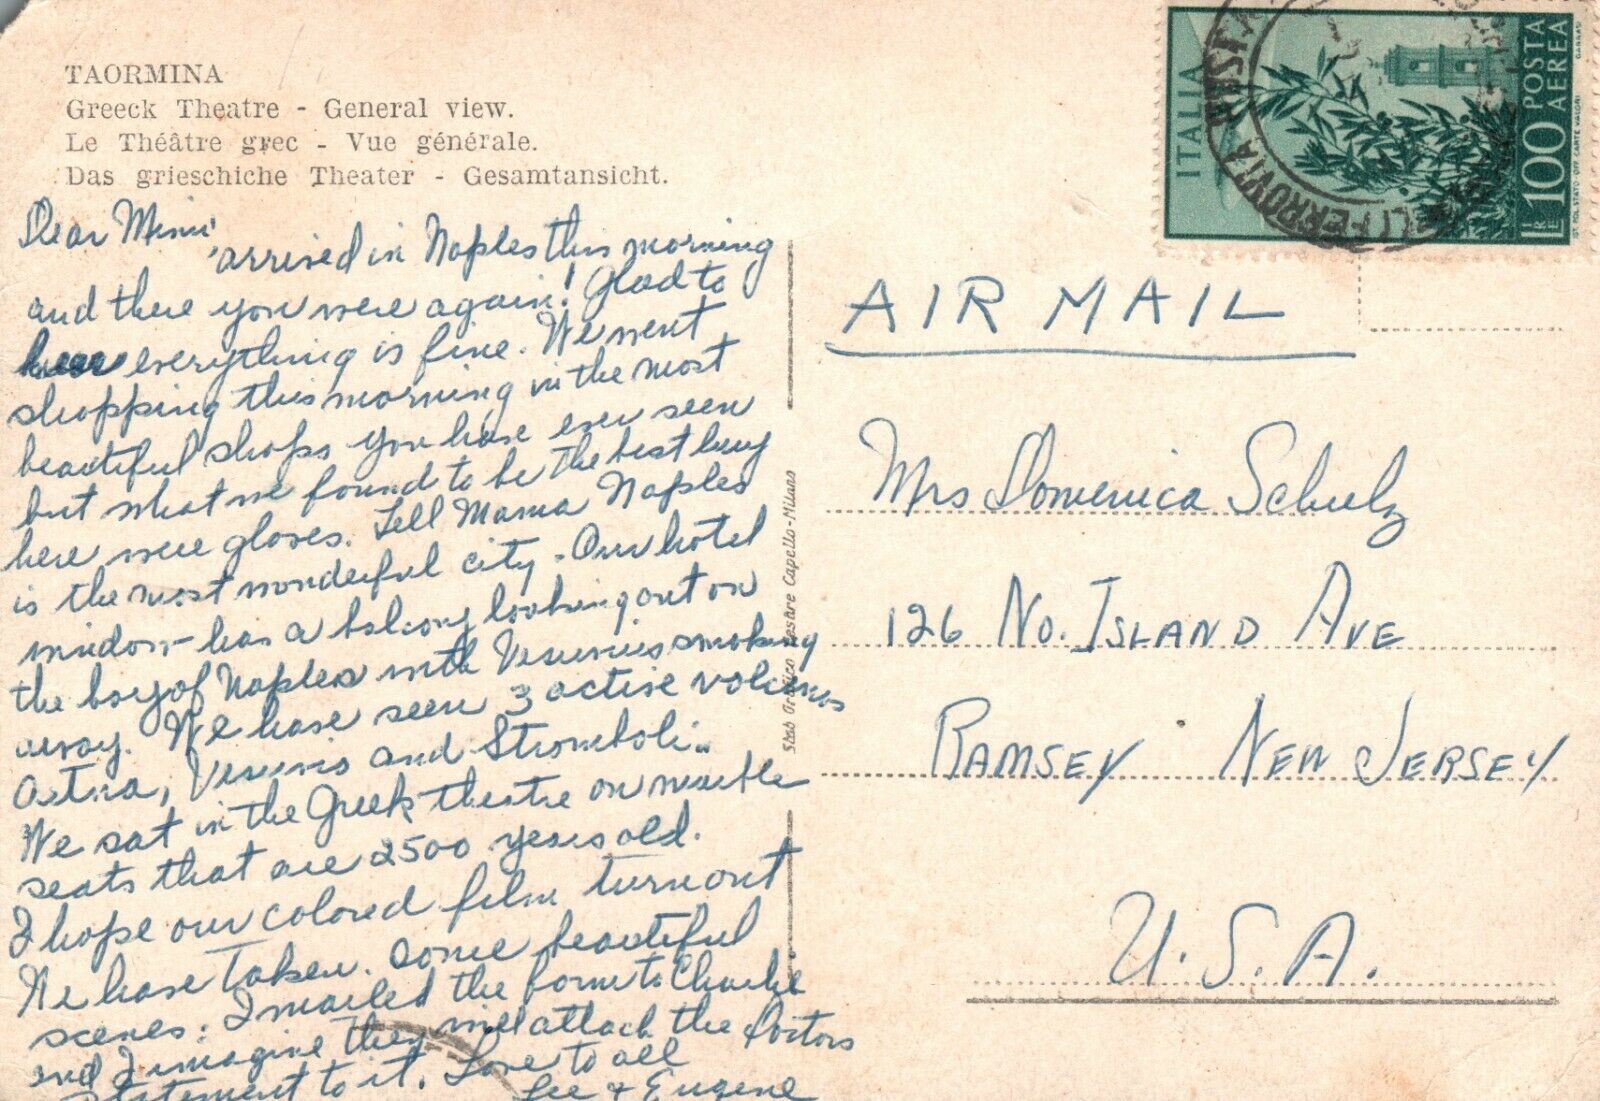 TAORMINA
Greeck Theatre - General view.
Le Théâtre grec - Vue générale.
Das grieschiche Theater - Gesamtansicht.
Dear Mimi
arrived in Naples this morning
and there you were again! Glad to
hear everything is fine. We went
shopping this morning in the most
beautiful shops you have ever seen
but what we found to be the best buy
here were gloves. Tell Mama Naples
is the most wonderful city. Our hotel
window has a balcony looking out on
the bay of Naples with Vesuvius smoking
away. We have seen 3 active volcanos
Aetna, Vesuvius and Stromboli..
We sat in the Greek theatre on marble
seats that are 2500 years old.
I hope our colored film turn out
We have taken some beautiful
scenes. I mailed the form to Charlie
and I imagine they will attach the Doctors
statement to it. Love to all
Lee & Eugene
Stab Grafico Cesare Capello-Milano
ITALIA
POSTA AEREA
LIRE 100
IST. POL. STATO OFF. CARTE VALORI
FERROVIA
AIR MAIL
Mrs Domenica Schulz
126 No. Island Ave
Ramsey New Jersey
U.S.A.